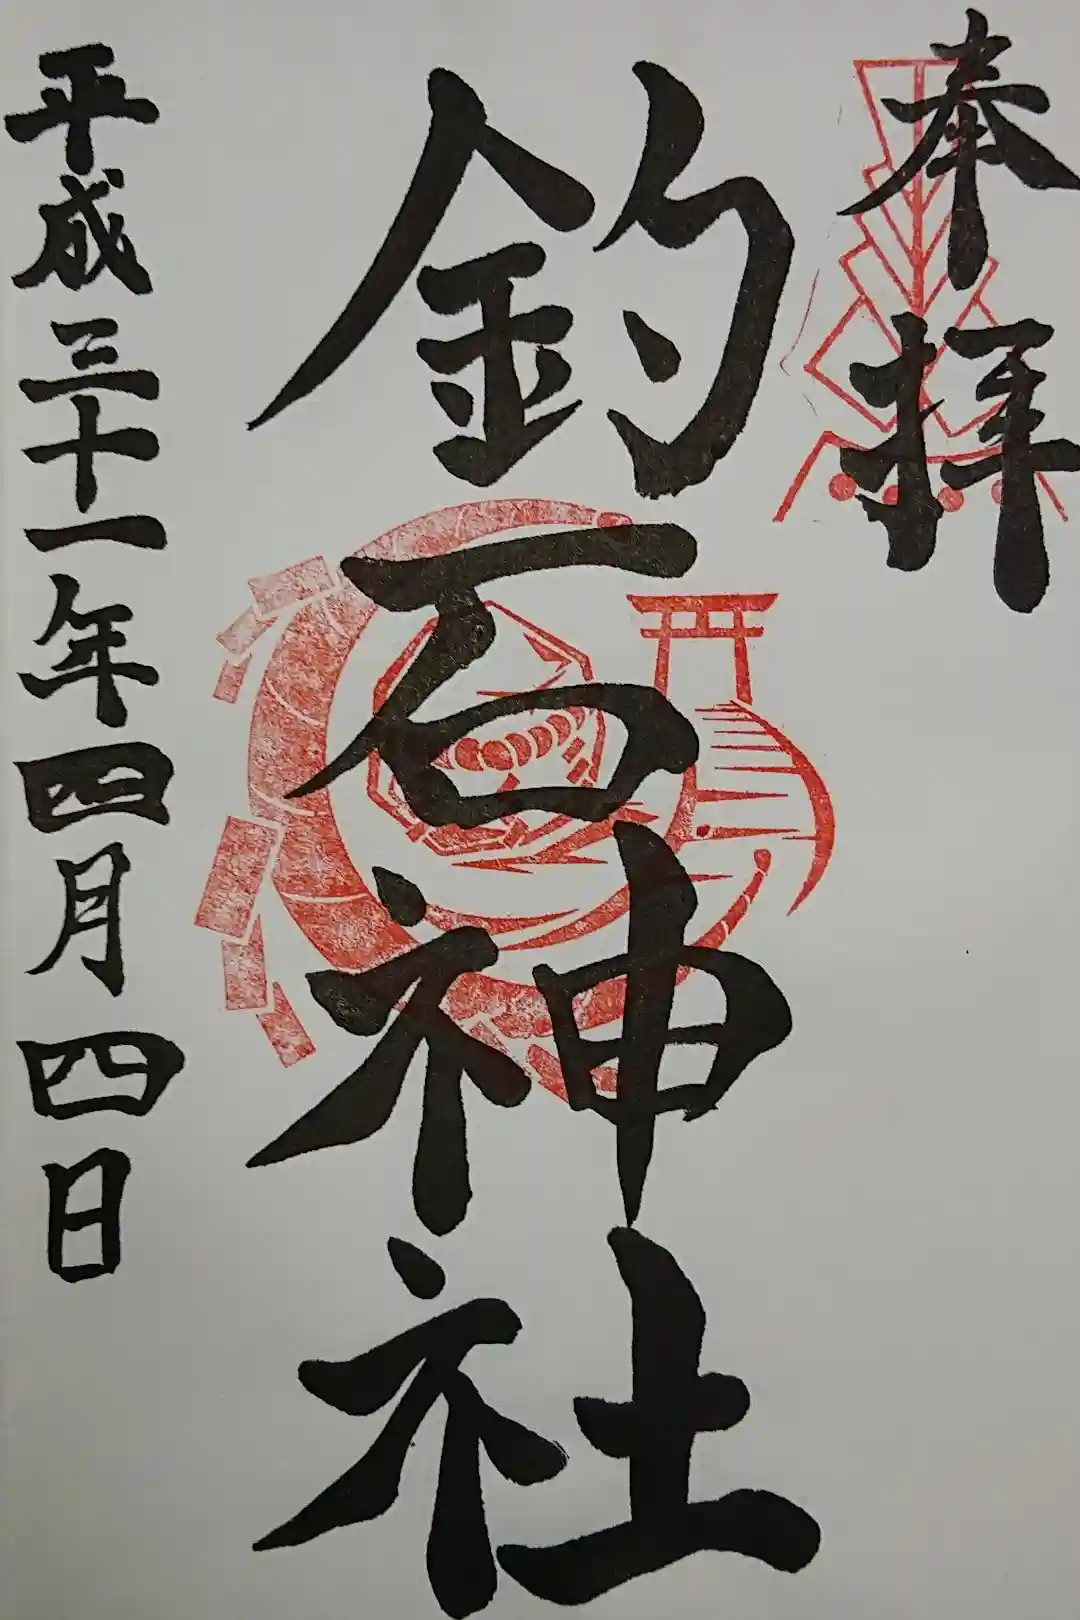 奉拝
釣石神社
平成三十一年四月四日